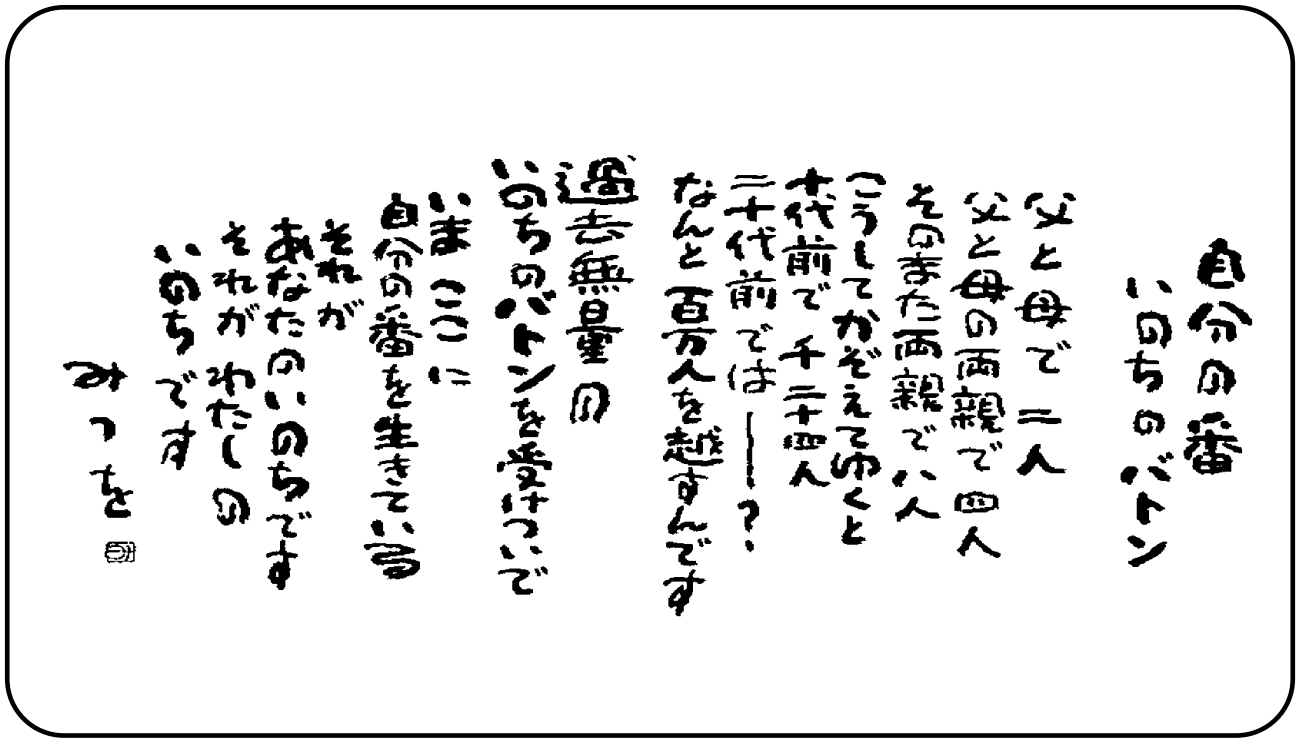 自分の番
いのちのバトン
父と母で二人
父と母の両親で四人
そのまた両親で八人
こうしてかぞえてゆくと
十代前で千二十四人
二十代前では――?
なんと百万人を越すんです
過去無量の
いのちのバトンを受けついで
いま ここに
自分の番を生きている
それが
あなたのいのちです
それがわたしの
いのちです
みつを